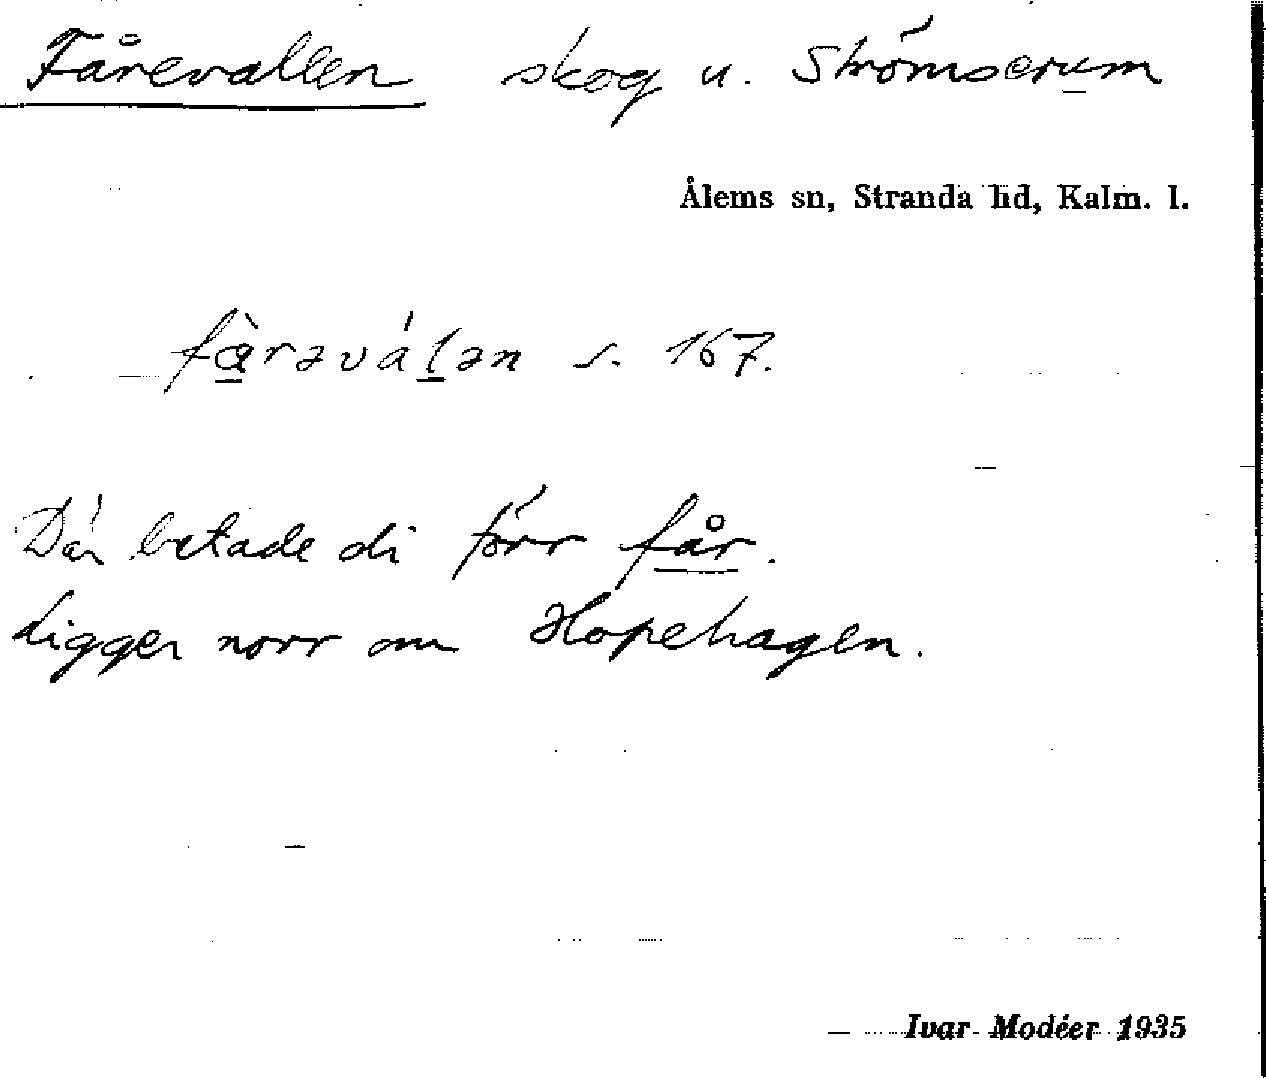 Fårevallen skog u. Strömserum
Ålems sn, Stranda hd, Kalm. l.
fàrəváḷən s. 167.
Där betade di förr får.
Ligger norr om Hopehagen.
Ivar Modéer 1935